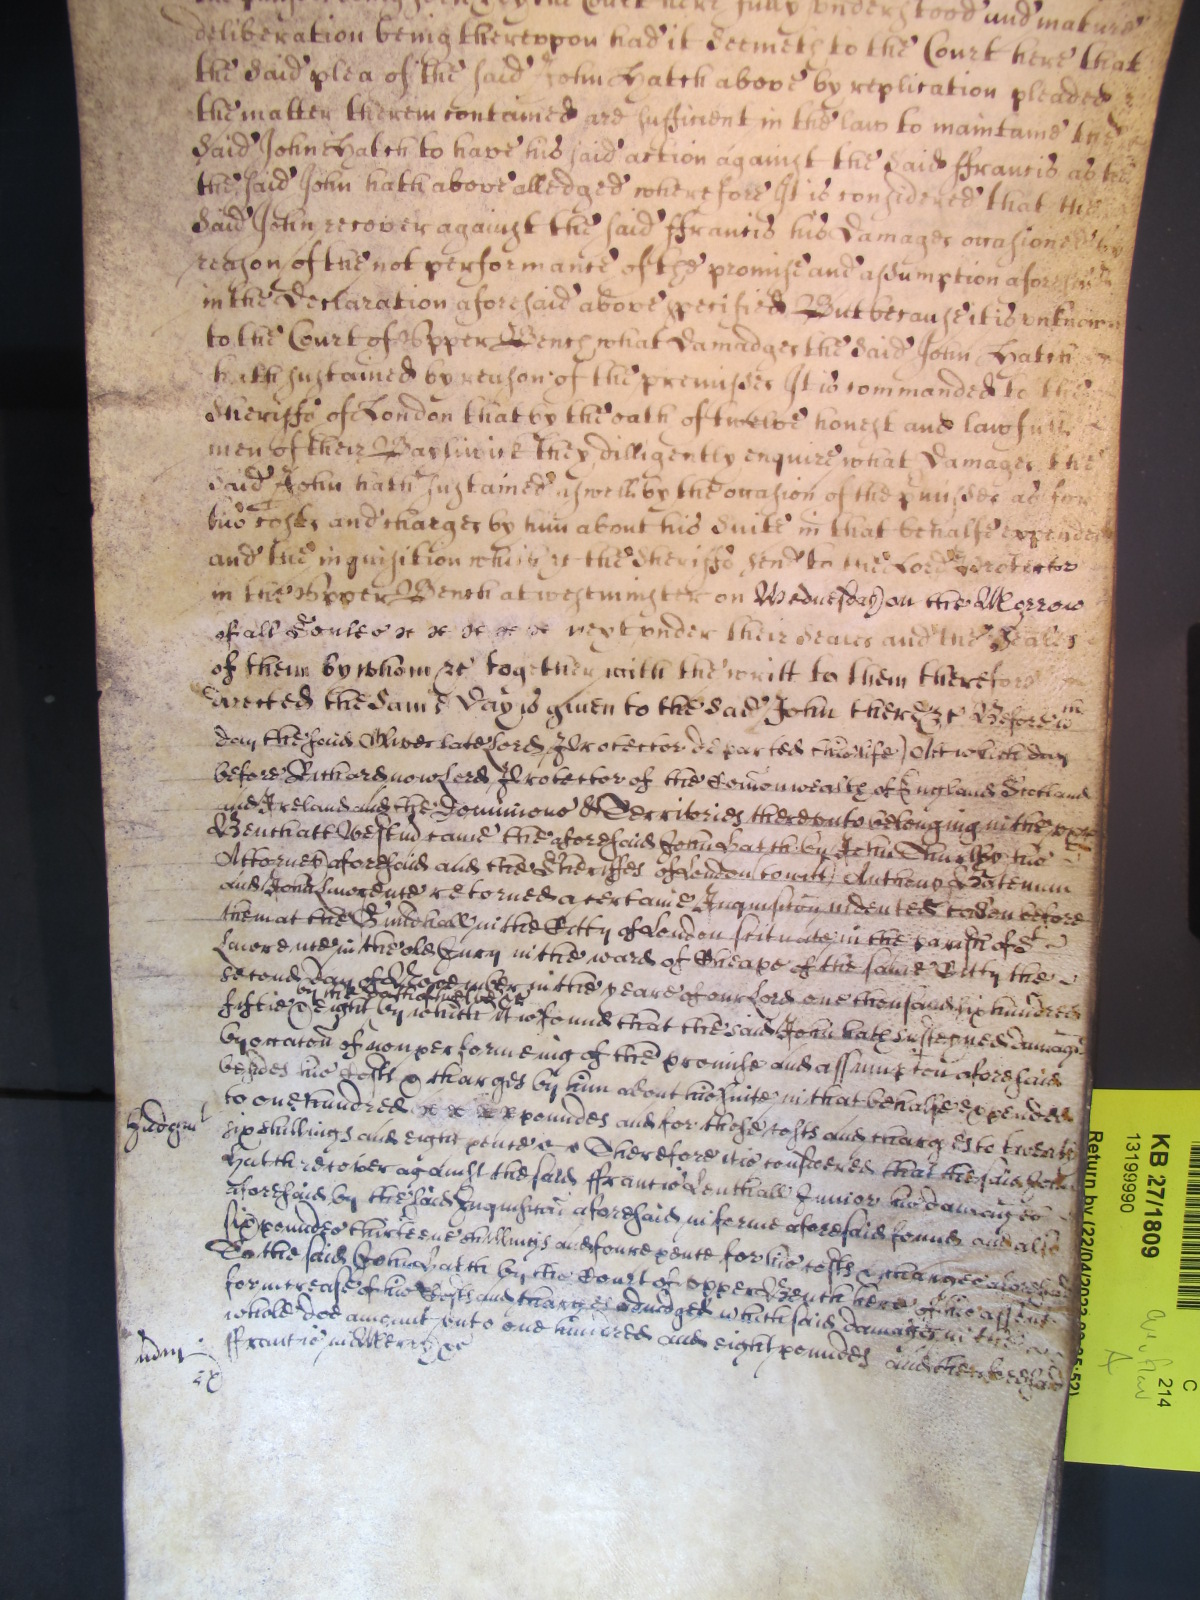 the Court here fully understood and mature
deliberation being thereupon had it seemeth to the Court here that
the said plea of the said John Hatch above by replication pleaded
the matter therein contained are sufficient in the law to maintaine the
said John Hatch to have his said action against the said ffrancis as
the said John hath above alledged wherefore It is considered that the
said John recover against the said ffrancis his Damages occasioned by
reason of the not performance of the promise and assumption aforesaid
in the Declaration aforesaid above specified But because it is unknown
to the Court of Upper Bench what damadges the said John Hatch
hath sustained by reason of the premisses It is commanded to the
Sheriffs of London that by the oath of twelve honest and lawfull
men of their Bayliwick they dilligently enquire what Damages the
said John hath sustained aswell by the occasion of the pmisses as for
his costs and charges by him about his suite in that behalfe expended
and the inquisition which &c the Sheriffs send to the Lord Protector
in the Upper Bench at westminster on Wednesday on the Morrow
of all Soules x x x x x next under their Seales and the Seales
of them by whom &c together with the writt to them therefore
directed the same day is given to the said John there &c Before wch
day the said Oliver late Lord Protector departed this life) Att which day
before Richard now Lord Protector of the Comonwealth of England Scotland
and Ireland and the Dominions & Territories thereunto belonging in the upper
Bench att Westmr came the aforesaid John Hatch by John Thurlby his
Attorney aforesaid and the Sheriffes of London towitt Anthony Bateman
and John Lawrence retorned a certaine Inquisicon indented taken before
them at the Guildhall in the Citty of London scituate in the parish of St
Lawrence in the old Jury in the ward of Cheape of the same Citty the
second day of November in the yeare of our Lord one thousand six hundred
by the oath of twelve &c
fiftie & eight by which it is found that the said John hath susteyned damages
by occacon of nonperformeing of the promise and assumpcon aforesaid
besides his Costs & charges by him about his suite in that behalfe expended
to one hundred x x x x poundes and for those costs and charges to twentie
Judgmt
six shillings and eight pence Therefore it is considered that the said John
Hatch recover against the said ffrancis Lenthall Junior his damages
aforesaid by the said Inquisicon aforesaid in forme aforesaid found and also
six poundes thirteene shillings and foure pence for his costs & charges aforesaid
To the said John Hatch by the Court of upper Bench here of his assent
for increase of his Costs and charges adiudged which said damages in the
whole doe amount unto one hundred and eight poundes And the said
ffrancis in Mercy &c